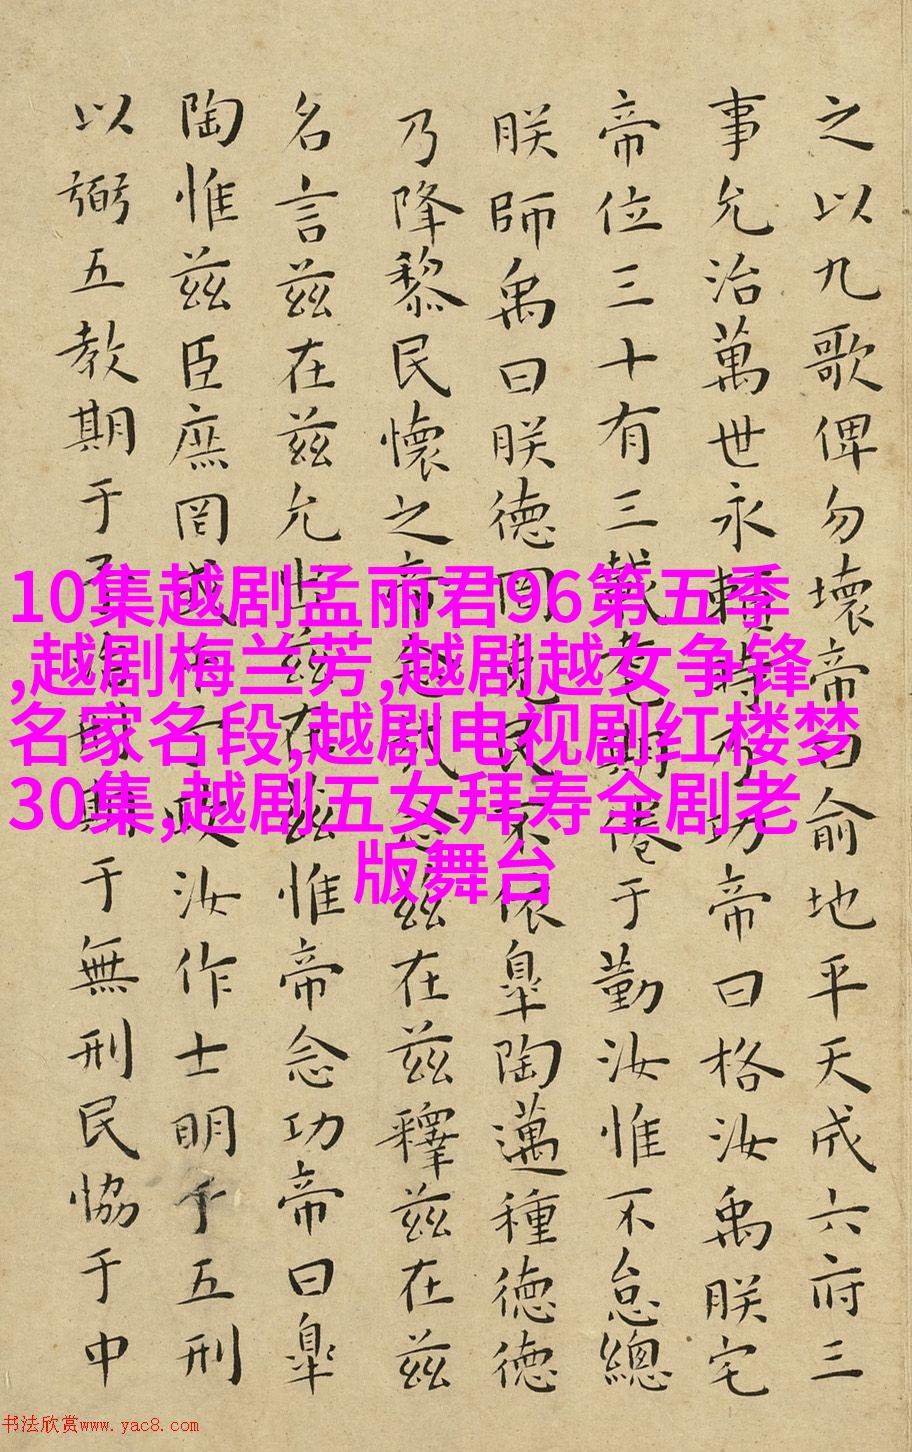 之以九歌俾勿壞帝曰俞地平天成六府三
事允治萬世永賴時乃功帝曰格汝禹朕宅
帝位三十有三載耄期倦于勤汝惟不怠總
朕師禹曰朕德罔克民不依臯陶邁種德德
乃降黎民懷之帝念哉念茲在茲釋茲在茲
名言茲在茲允出茲在茲惟帝念功帝曰臯
陶惟茲臣庶罔或干予政汝作士明于五刑
以弼五教期于予治刑期于無刑民協于中
10集越剧孟丽君96第五季
,越剧梅兰芳,越剧越女争锋
名家名段,越剧电视剧红楼梦
30集,越剧五女拜寿全剧老
版舞台
书法欣赏www.yac8.com